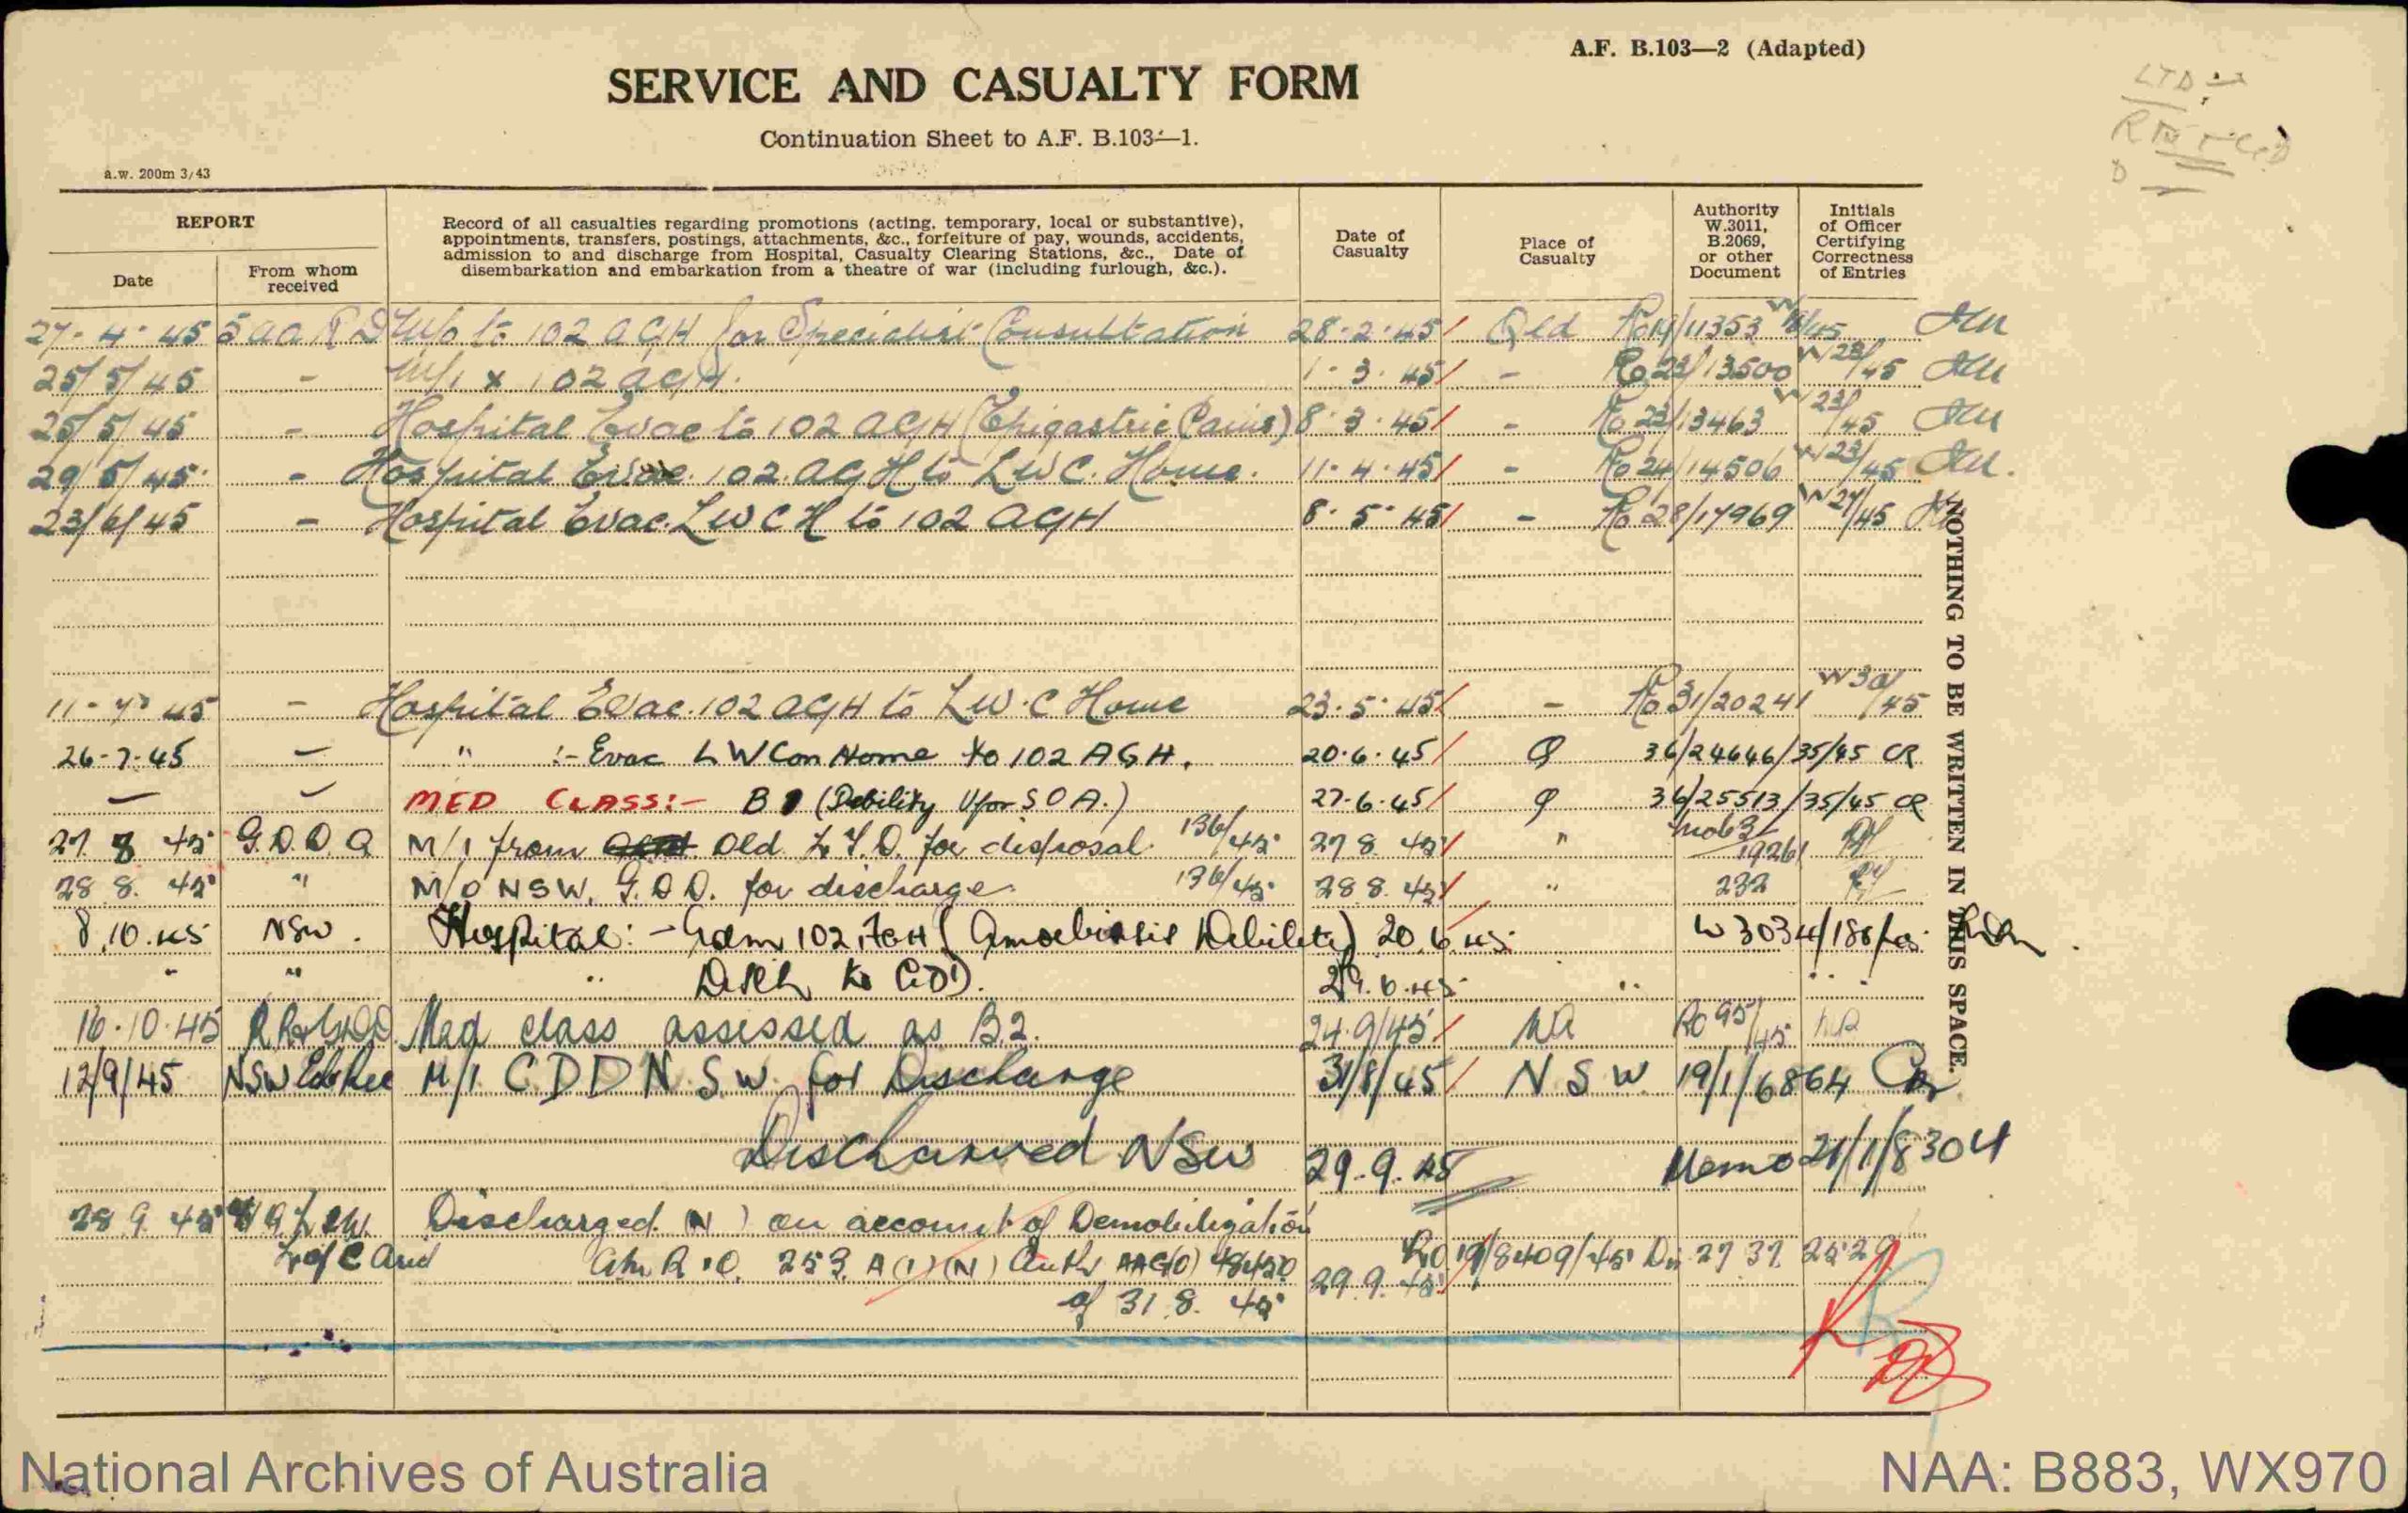 A.F. B.103—2 (Adapted)
SERVICE AND CASUALTY FORM
Continuation Sheet to A.F. B.103—1.
a.w. 200m 3/43
LTD
REPORT
Date
From whom received
Record of all casualties regarding promotions (acting, temporary, local or substantive), appointments, transfers, postings, attachments, &c., forfeiture of pay, wounds, accidents, admission to and discharge from Hospital, Casualty Clearing Stations, &c., Date of disembarkation and embarkation from a theatre of war (including furlough, &c.).
Date of Casualty
Place of Casualty
Authority W.3011, B.2069, or other Document
Initials of Officer Certifying Correctness of Entries
27-4-45 5 AARD M/o to 102 AGH for Specialist Consultation 28-2-45 Qld Ro 19/11353
25/5/45 - M/I x 102 AGH. 1-3-45 - Ro 23/13500 W23/45
25/5/45 - Hospital Evac to 102 AGH (Epigastric Pains) 8-3-45 - Ro 23/13463 W23/45
29/5/45 - Hospital Evac. 102 AGH to LWC. Home. 11-4-45 - Ro 24/14506 W23/45
23/6/45 - Hospital Evac. LWCH to 102 AGH 8-5-45 - Ro 28/17969 W27/45
11-7-45 - Hospital Evac. 102 AGH to LW.C Home 23-5-45 - Ro 31/20241 W30/45
26-7-45 - " :- Evac LW Con Home to 102 AGH. 20.6.45 Q 36/24646/35/45 CR
- - MED CLASS:- B (Debility U for S O A.) 27-6-45 Q 36/25513/35/45 CR
27 8 45 G.D.D. Q M/I from Qld L.T.D. for disposal 136/45 27 8 45 " 19261
28 8. 45 " M/O NSW. G.D.D. for discharge. 136/45 28 8. 45 " 232
8.10.45 NSW. Hospital:- Adm 102 AGH (Amoebiasis Debility) 20.6.45 W3034/188/45
" " " Disch to GDD. 29.6.45 " "
16-10-45 Med class assessed as B2. 24-9/45 RO 95/45
12/9/45 NSW Ech Rec M/I. GDD N.S.W. for Discharge 31/8/45 NSW 19/1/6864
Discharged NSW 29.9.45 Memo 21/1/8304
28 9 45 Discharged (N) on account of Demobilization
L of C Area AMR&O. 253. A(1)(N) Auth AAG(O) 48450 RO 19/8409/45 D. 27 37 2529
of 31.8.45 29.9.45
NOTHING TO BE WRITTEN IN THIS SPACE.
National Archives of Australia
NAA: B883, WX970